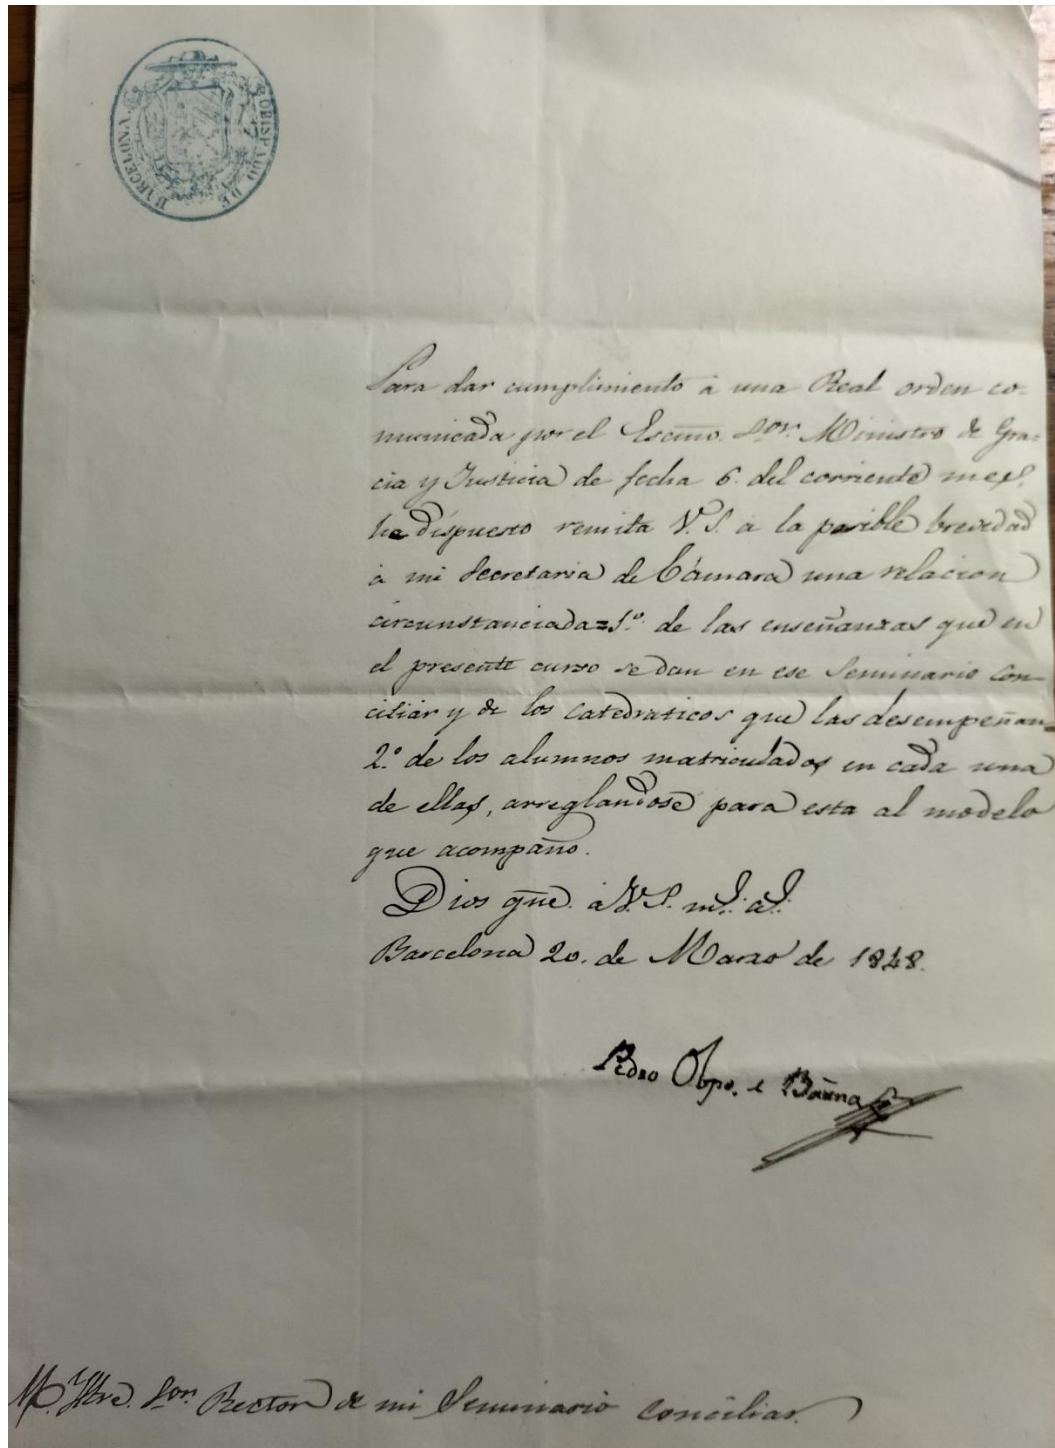 OBISPADO DE BARCELONA.
Para dar cumplimiento á una Real orden co-
municada por el Escmo. Sor. Ministro de Gra-
cia y Justicia de fecha 6. del corriente mes,
he dispuesto remita V. S. á la posible brevedad
á mi Secretaria de Cámara una relacion
circunstanciada=1.º de las enseñanzas que en
el presente curso se dan en ese Seminario con-
ciliar y de los catedraticos que las desempeñan=
2.º de los alumnos matriculados en cada una
de ellas, arreglandose para esta al modelo
que acompaño.
Dios gue. á V. S. ms. as.
Barcelona 20. de Marzo de 1848.
Pedro Obpo. e Barna
M. Iltre. Sor. Rector de mi Seminario conciliar.